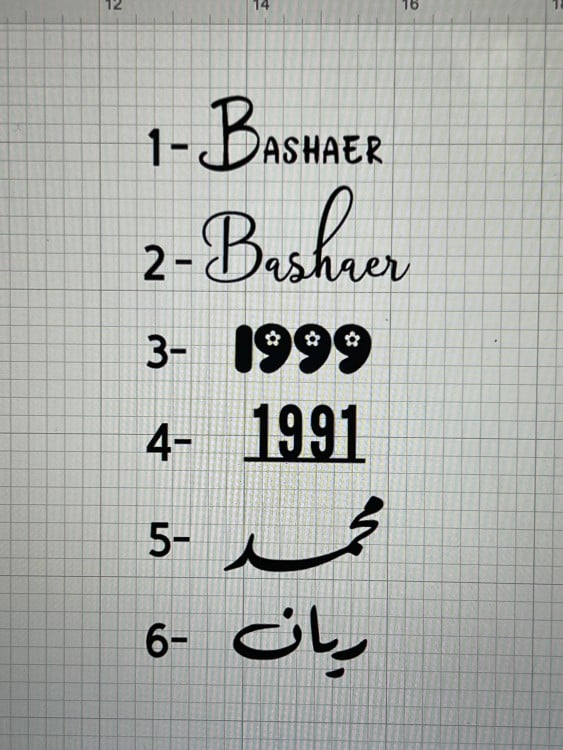 12 14 16 18
1- BASHAER
2- Bashaer
3- 1999
4- 1991
5- محمد
6- ريان